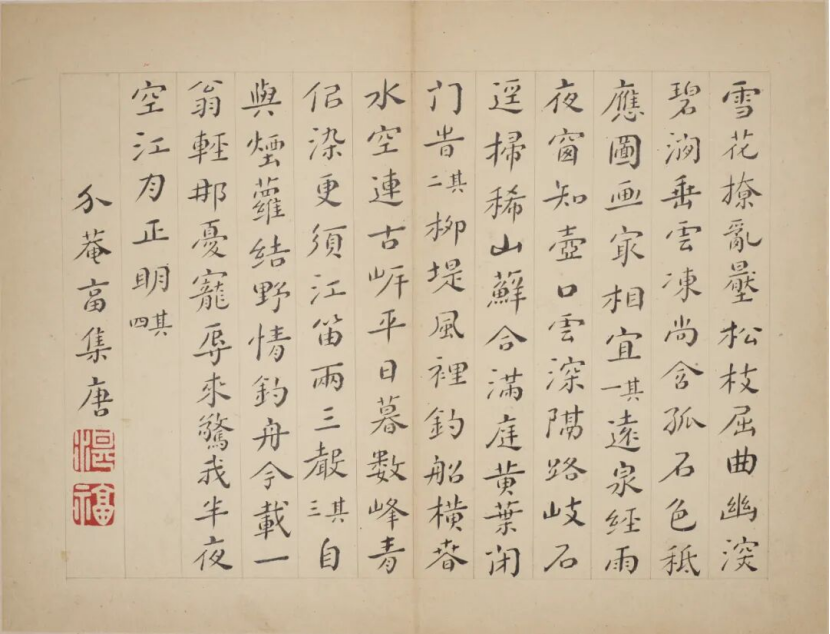 雪花撩亂壓松枝屈曲幽深
碧澗垂雲凍尚含孤石色秪
應圖画㝡相宜其一遠泉經雨
夜窗知壺口雲深隔路岐石
逕掃稀山蘚合滿庭黃葉閉
門旹其二柳堤風裡釣船橫春
水空連古岸平日暮数峰青
似染更須江笛兩三聲其三自
與煙蘿結野情釣舟今載一
翁輕那憂寵辱來驚我半夜
空江月正明其四
介菴畐集唐
湜福